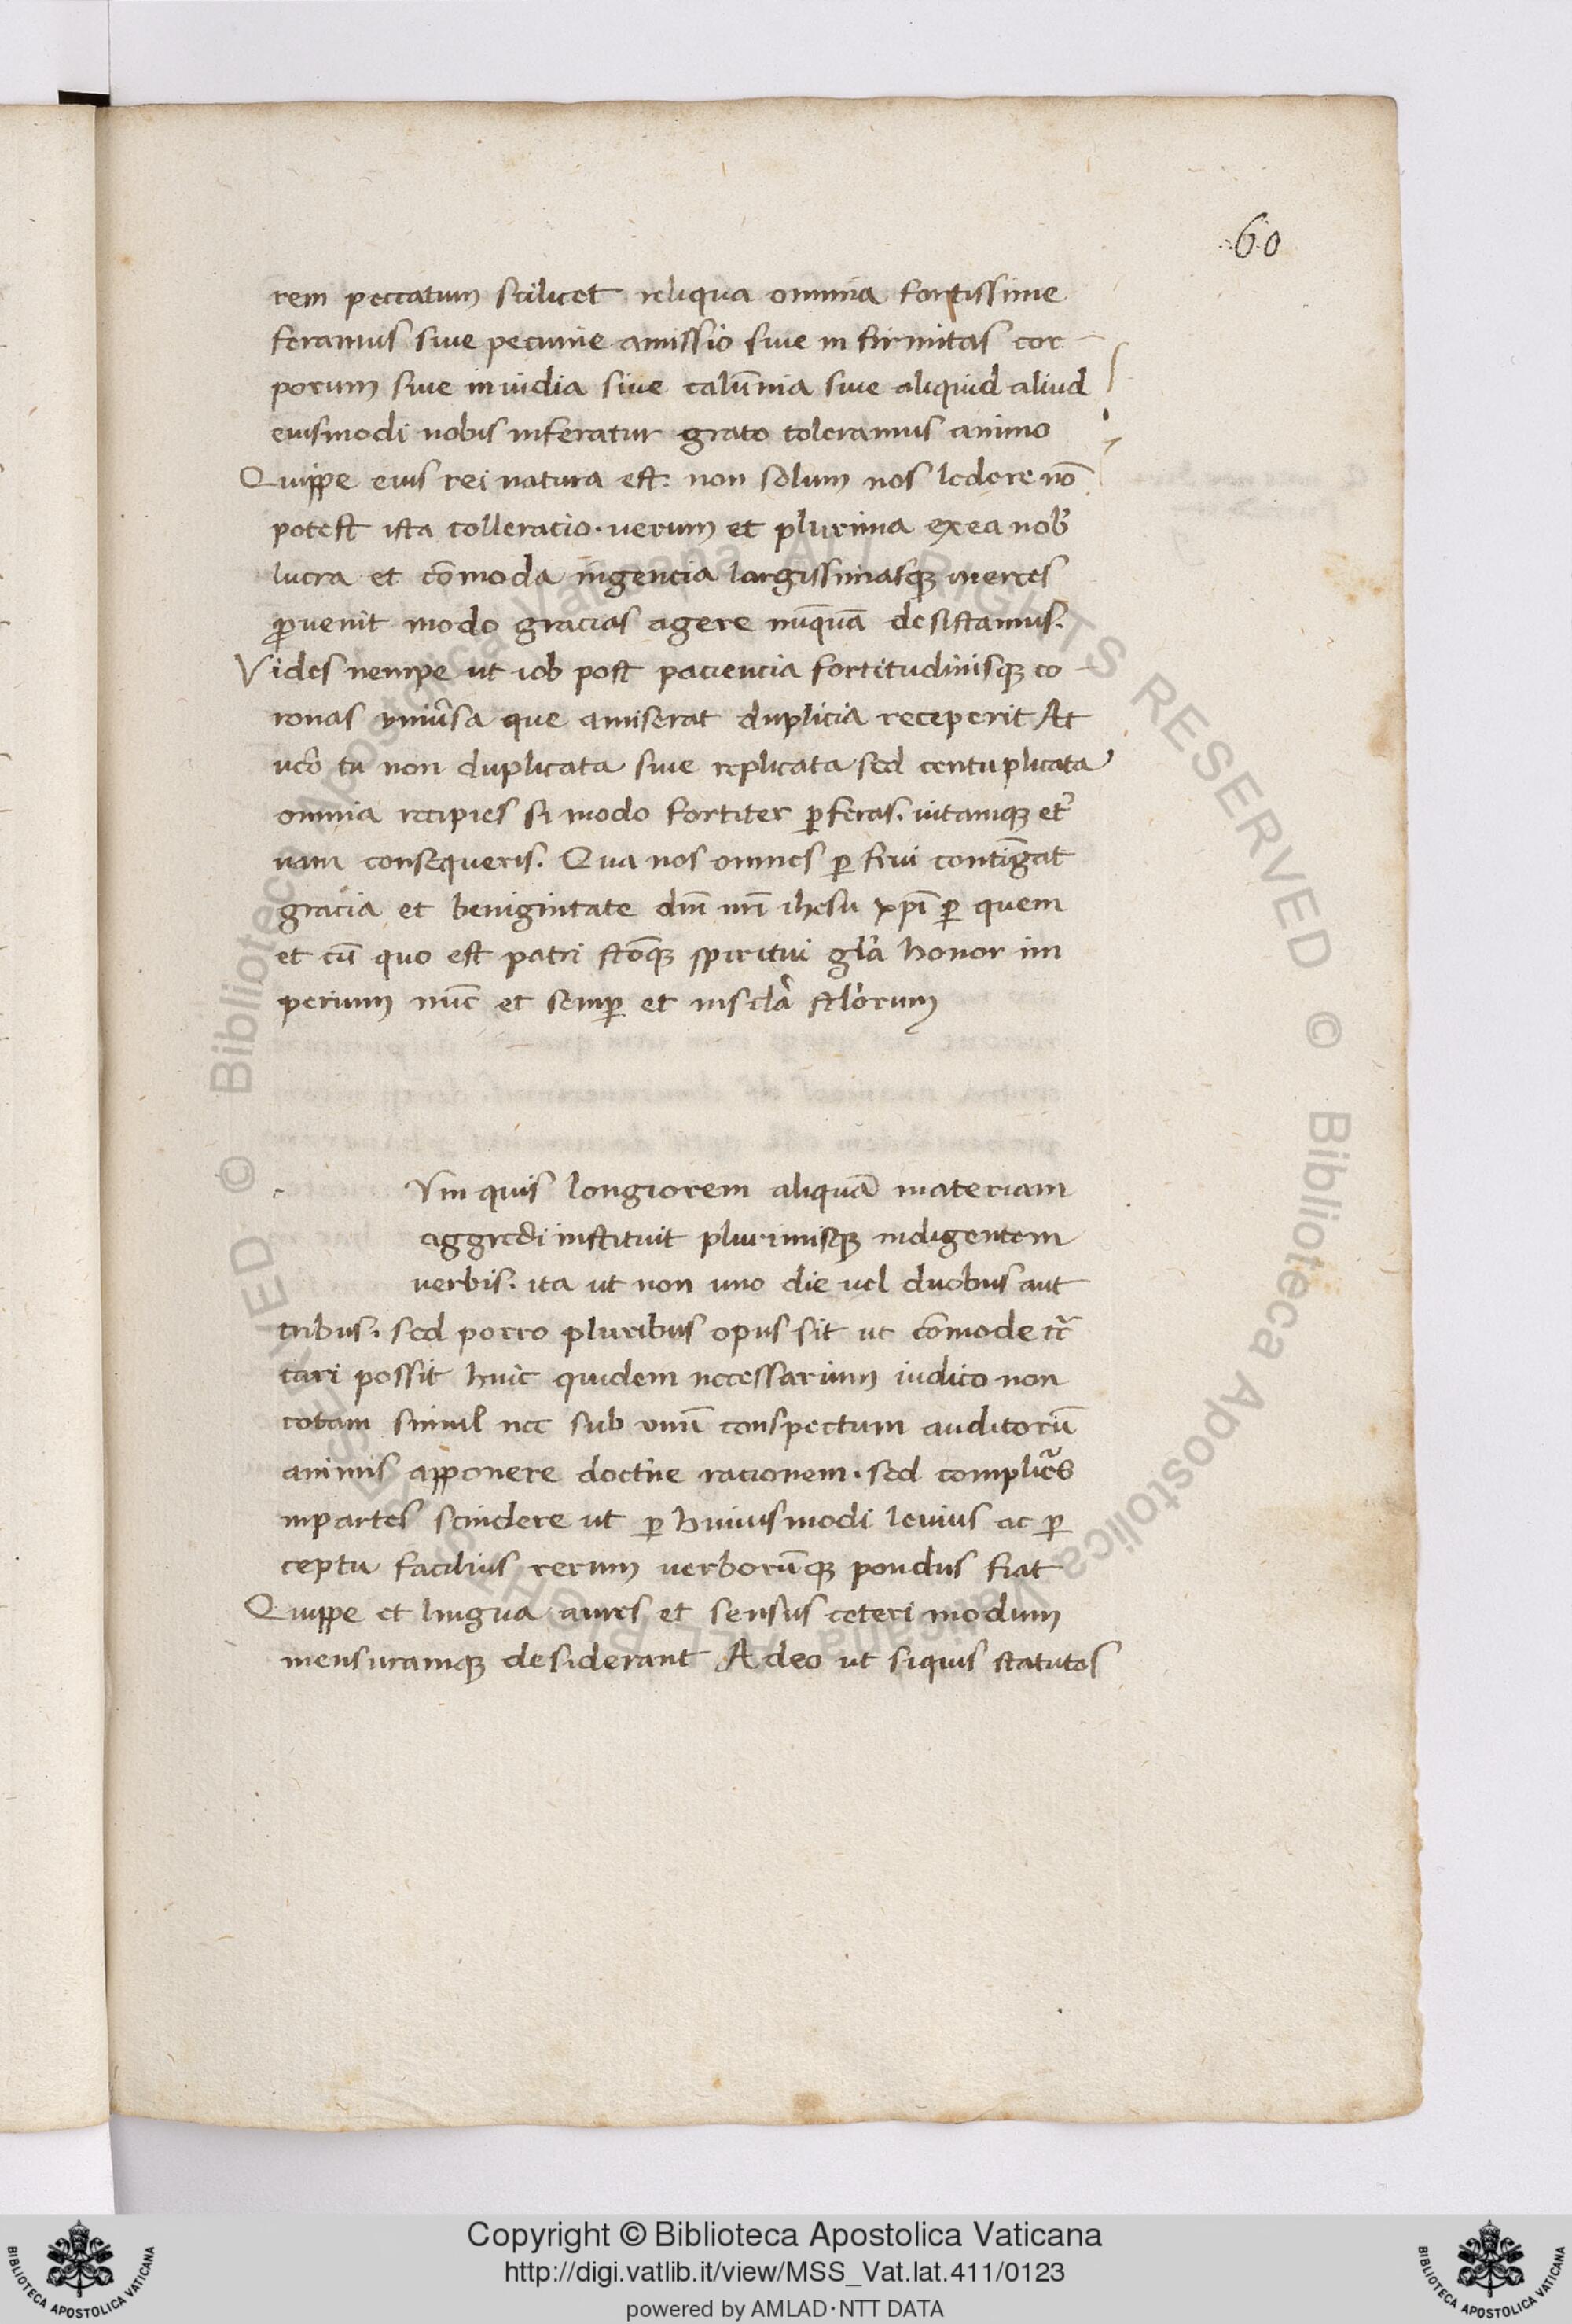 60
rem peccatum scilicet reliqua omnia fortissime
feramus siue pecunie amissio siue in firmitas cor
porum siue inuidia siue calūnia siue aliquid aliud
eiusmodi nobis inferatur grato toleramus animo
Quippe eius rei natura est. non solum nos ledere nō
potest ista colleracio. uerum et plurima ex ea nob̄
lucra et cōmoda ingencia largissimasqꝫ merces
ꝓuenit modo gracias agere nūquā desistamus.
Vides nempe ut iob post paciencia fortitudinisqꝫ co
ronas uniūsa que amiserat duplicia receperit At
uēo tu non duplicata siue replicata sed centuplicata
omnia recipies si modo fortiter ꝑferas. uitamqꝫ et̄
nam consequeris. Qua nos omnes ꝑ frui contingat
gracia et benignitate dn̄i nr̄i ihesu xp̄i ꝑ quem
et cū quo est patri sc̄oqꝫ spiritui gl̄a honor im
perium nūc et semꝑ et in scl̄a scl̄orum
Vm quis longiorem aliquā materiam
aggredi instituit plurimisqꝫ indigentem
uerbis. ita ut non uno die uel duobus aut
tribus. sed porro pluribus opus sit ut cōmode
tari possit huic quidem necessarium iudico non
totam simul nec sub unū conspectum auditorū
animis apponere doctr̄ie racionem. sed
in partes scindere ut ꝑ huiusmodi leuius ac ꝑ
ceptu facilius rerum uerborūqꝫ pondus fiat
Quippe et lingua aures et sensus ceteri modum
mensuramqꝫ desiderant Adeo ut siquis statutos
© Biblioteca Apostolica Vaticana ALL RIGHTS RESERVED © Biblioteca Apostolica Vaticana ALL RIGHTS RESERVED
Copyright © Biblioteca Apostolica Vaticana
http://digi.vatlib.it/view/MSS_Vat.lat.411/0123
powered by AMLAD·NTT DATA
BIBLIOTECA APOSTOLICA VATICANA
BIBLIOTECA APOSTOLICA VATICANA